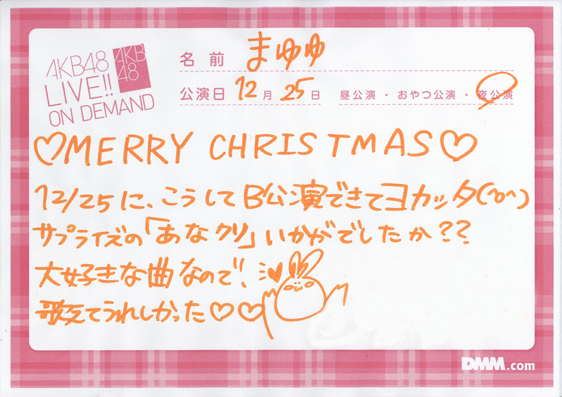 AKB48
LIVE!!
ON DEMAND
AKB
48
名前 まゆゆ
公演日 12月 25日 昼公演・おやつ公演・夜公演
♡MERRY CHRISTMAS♡
12/25に、こうしてB公演できてヨカッタ(^o^)
サプライズの「あなクリ」いかがでしたか??
大好きな曲なので!
歌えてうれしかった♡♡
DMM.com